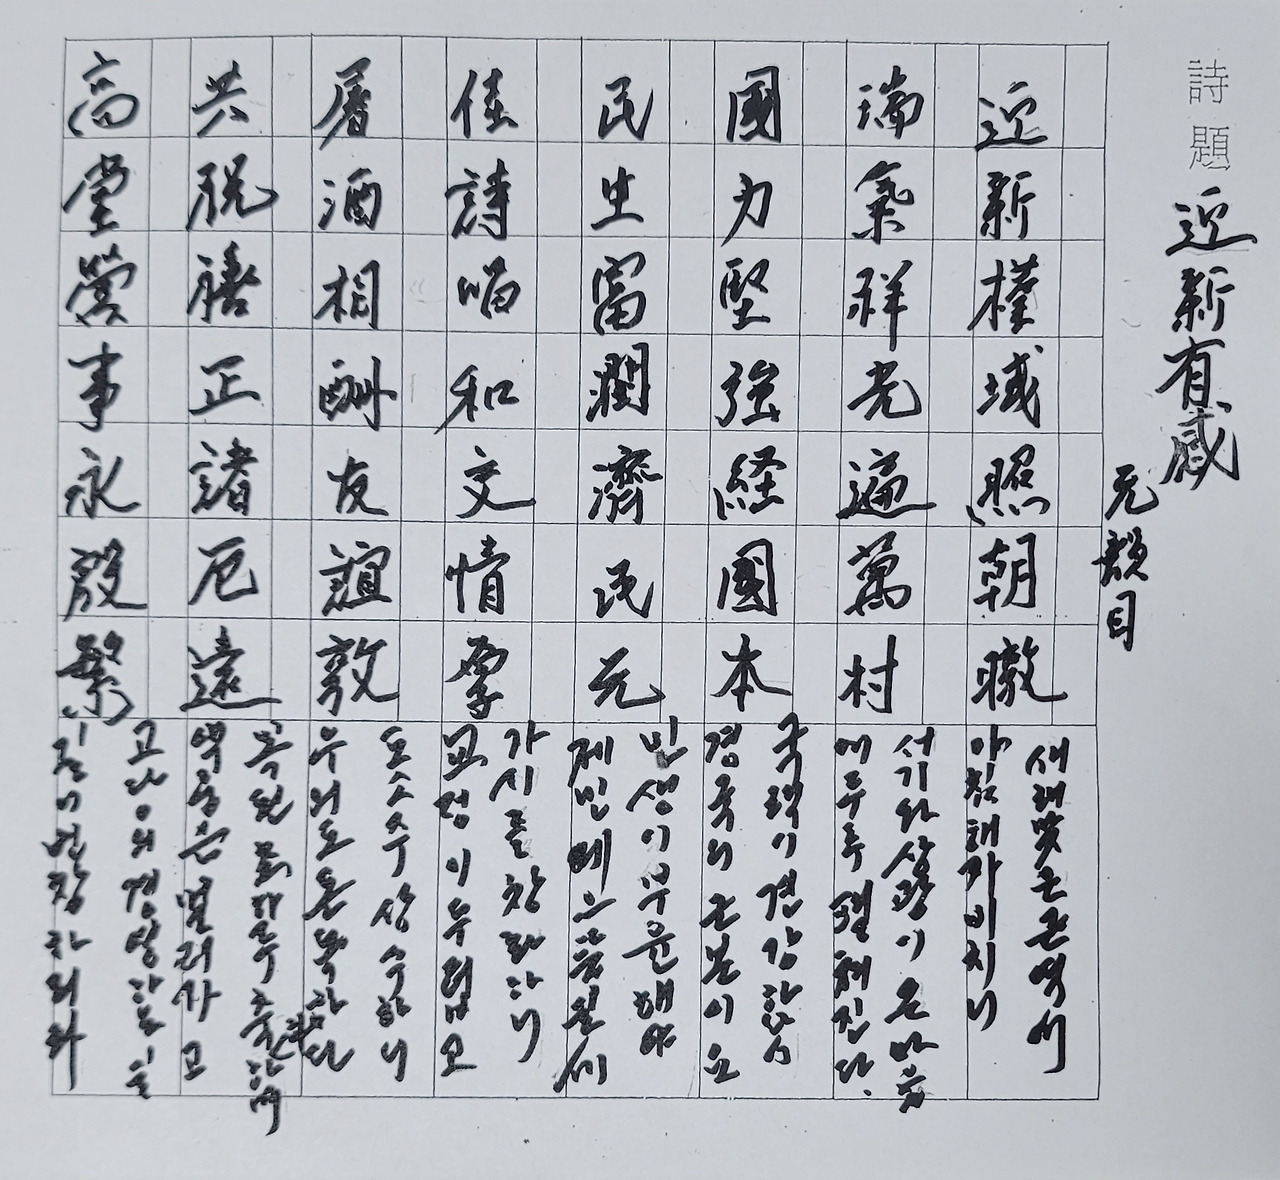 詩題 迎新有感
元韻目
迎新槿域照朝暾
새해맞는 근역에
아침해가 비치니
瑞氣祥光遍萬村
서기와 상광이 온마을
에 두루 펼쳐진다.
國力堅強経國本
국력이 견강함은
경국의 근본이요
民生富潤濟民元
민생이 부윤해야
제민에 으뜸일세
佳詩唱和交情厚
가시를 창화하니
교정이 두텁고
屠酒相酬友誼敦
도소수 상수하니
우의도 돈독하다
共祝禧正諸厄遠
복된
멀리가고
高堂營事永殷繁
고당의 경영하는 일
길이 번창하리라